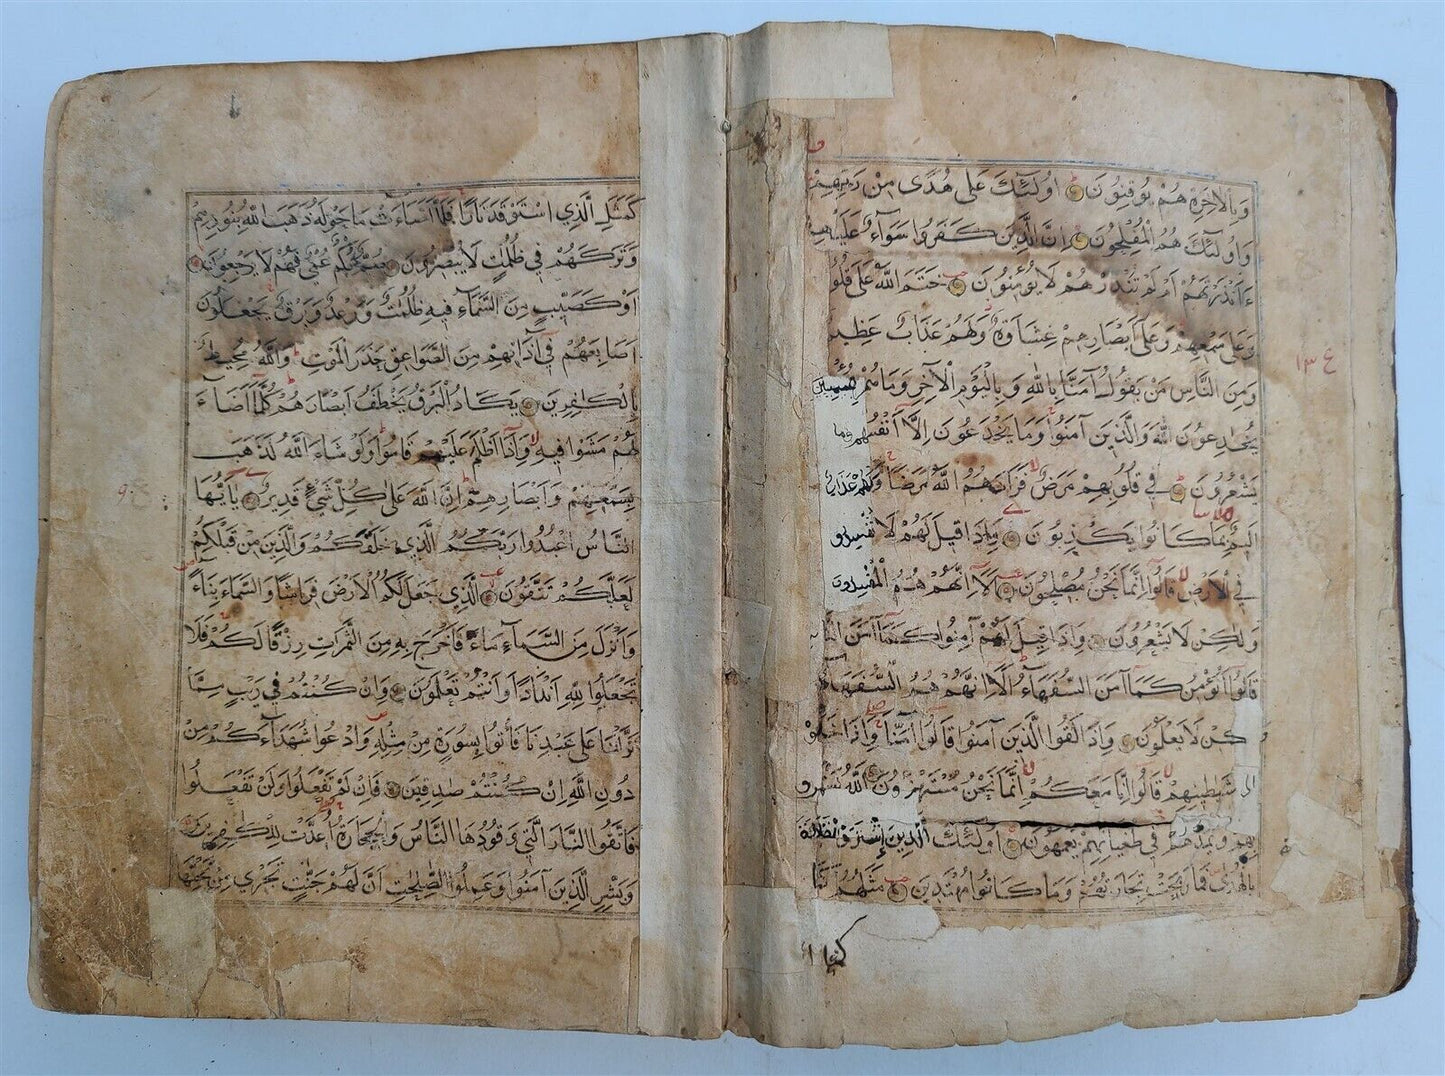 وَبِالْاٰخِرَةِ هُمْ يُوقِنُونَ اُولٰئِكَ عَلٰى هُدًى مِنْ رَبِّهِمْ
وَاُولٰئِكَ هُمُ الْمُفْلِحُونَ اِنَّ الَّذِينَ كَفَرُوا سَوَآءٌ عَلَيْهِمْ
ءَاَنْذَرْتَهُمْ اَمْ لَمْ تُنْذِرْهُمْ لَا يُؤْمِنُونَ خَتَمَ اللّٰهُ عَلٰى قُلُو
وَعَلٰى سَمْعِهِمْ وَعَلٰى اَبْصَارِهِمْ غِشَاوَةٌ وَلَهُمْ عَذَابٌ عَظِيمٌ
وَمِنَ النَّاسِ مَنْ يَقُولُ اٰمَنَّا بِاللّٰهِ وَبِالْيَوْمِ الْاٰخِرِ وَمَا هُمْ بِمُؤْمِنِينَ
يُخَادِعُونَ اللّٰهَ وَالَّذِينَ اٰمَنُوا وَمَا يَخْدَعُونَ اِلَّا اَنْفُسَهُمْ وَمَا
يَشْعُرُونَ فِي قُلُوبِهِمْ مَرَضٌ فَزَادَهُمُ اللّٰهُ مَرَضًا وَلَهُمْ عَذَابٌ
اَلِيمٌ بِمَا كَانُوا يَكْذِبُونَ وَاِذَا قِيلَ لَهُمْ لَا تُفْسِدُوا
فِي الْاَرْضِ قَالُوا اِنَّمَا نَحْنُ مُصْلِحُونَ اَلَا اِنَّهُمْ هُمُ الْمُفْسِدُونَ
وَلٰكِنْ لَا يَشْعُرُونَ وَاِذَا قِيلَ لَهُمْ اٰمِنُوا كَمَا اٰمَنَ النَّاسُ
قَالُوا اَنُؤْمِنُ كَمَا اٰمَنَ السُّفَهَآءُ اَلَا اِنَّهُمْ هُمُ السُّفَهَآءُ
كِنْ لَا يَعْلَمُونَ وَاِذَا لَقُوا الَّذِينَ اٰمَنُوا قَالُوا اٰمَنَّا وَاِذَا خَلَوْا
اِلٰى شَيٰطِينِهِمْ قَالُوا اِنَّا مَعَكُمْ اِنَّمَا نَحْنُ مُسْتَهْزِؤُنَ اَللّٰهُ يَسْتَهْزِئُ
بِهِمْ وَيَمُدُّهُمْ فِي طُغْيَانِهِمْ يَعْمَهُونَ اُولٰئِكَ الَّذِينَ اشْتَرَوُا الضَّلَالَةَ
بِالْهُدٰى فَمَا رَبِحَتْ تِجَارَتُهُمْ وَمَا كَانُوا مُهْتَدِينَ مَثَلُهُمْ
١٣٤
كَمَثَلِ الَّذِي اسْتَوْقَدَ نَارًا فَلَمَّا اَضَآءَتْ مَا حَوْلَهُ ذَهَبَ اللّٰهُ بِنُورِهِمْ
وَتَرَكَهُمْ فِي ظُلُمٰتٍ لَا يُبْصِرُونَ صُمٌّ بُكْمٌ عُمْيٌ فَهُمْ لَا يَرْجِعُونَ
اَوْ كَصَيِّبٍ مِنَ السَّمَآءِ فِيهِ ظُلُمَاتٌ وَرَعْدٌ وَبَرْقٌ يَجْعَلُونَ
اَصَابِعَهُمْ فِي اٰذَانِهِمْ مِنَ الصَّوَاعِقِ حَذَرَ الْمَوْتِ وَاللّٰهُ مُحِيطٌ
بِالْكَافِرِينَ يَكَادُ الْبَرْقُ يَخْطَفُ اَبْصَارَهُمْ كُلَّمَا اَضَآءَ
لَهُمْ مَشَوْا فِيهِ وَاِذَا اَظْلَمَ عَلَيْهِمْ قَامُوا وَلَوْ شَآءَ اللّٰهُ لَذَهَبَ
بِسَمْعِهِمْ وَاَبْصَارِهِمْ اِنَّ اللّٰهَ عَلٰى كُلِّ شَيْءٍ قَدِيرٌ يَا اَيُّهَا
النَّاسُ اعْبُدُوا رَبَّكُمُ الَّذِي خَلَقَكُمْ وَالَّذِينَ مِنْ قَبْلِكُمْ
لَعَلَّكُمْ تَتَّقُونَ اَلَّذِي جَعَلَ لَكُمُ الْاَرْضَ فِرَاشًا وَالسَّمَآءَ بِنَآءً
وَاَنْزَلَ مِنَ السَّمَآءِ مَآءً فَاَخْرَجَ بِهِ مِنَ الثَّمَرٰتِ رِزْقًا لَكُمْ فَلَا
تَجْعَلُوا لِلّٰهِ اَنْدَادًا وَاَنْتُمْ تَعْلَمُونَ وَاِنْ كُنْتُمْ فِي رَيْبٍ مِمَّا
نَزَّلْنَا عَلٰى عَبْدِنَا فَأْتُوا بِسُورَةٍ مِنْ مِثْلِهِ وَادْعُوا شُهَدَآءَكُمْ مِنْ
دُونِ اللّٰهِ اِنْ كُنْتُمْ صٰدِقِينَ فَاِنْ لَمْ تَفْعَلُوا وَلَنْ تَفْعَلُوا
فَاتَّقُوا النَّارَ الَّتِي وَقُودُهَا النَّاسُ وَالْحِجَارَةُ اُعِدَّتْ لِلْكٰفِرِينَ
وَبَشِّرِ الَّذِينَ اٰمَنُوا وَعَمِلُوا الصّٰلِحٰتِ اَنَّ لَهُمْ جَنّٰتٍ تَجْرِي مِنْ تَحْتِهَا